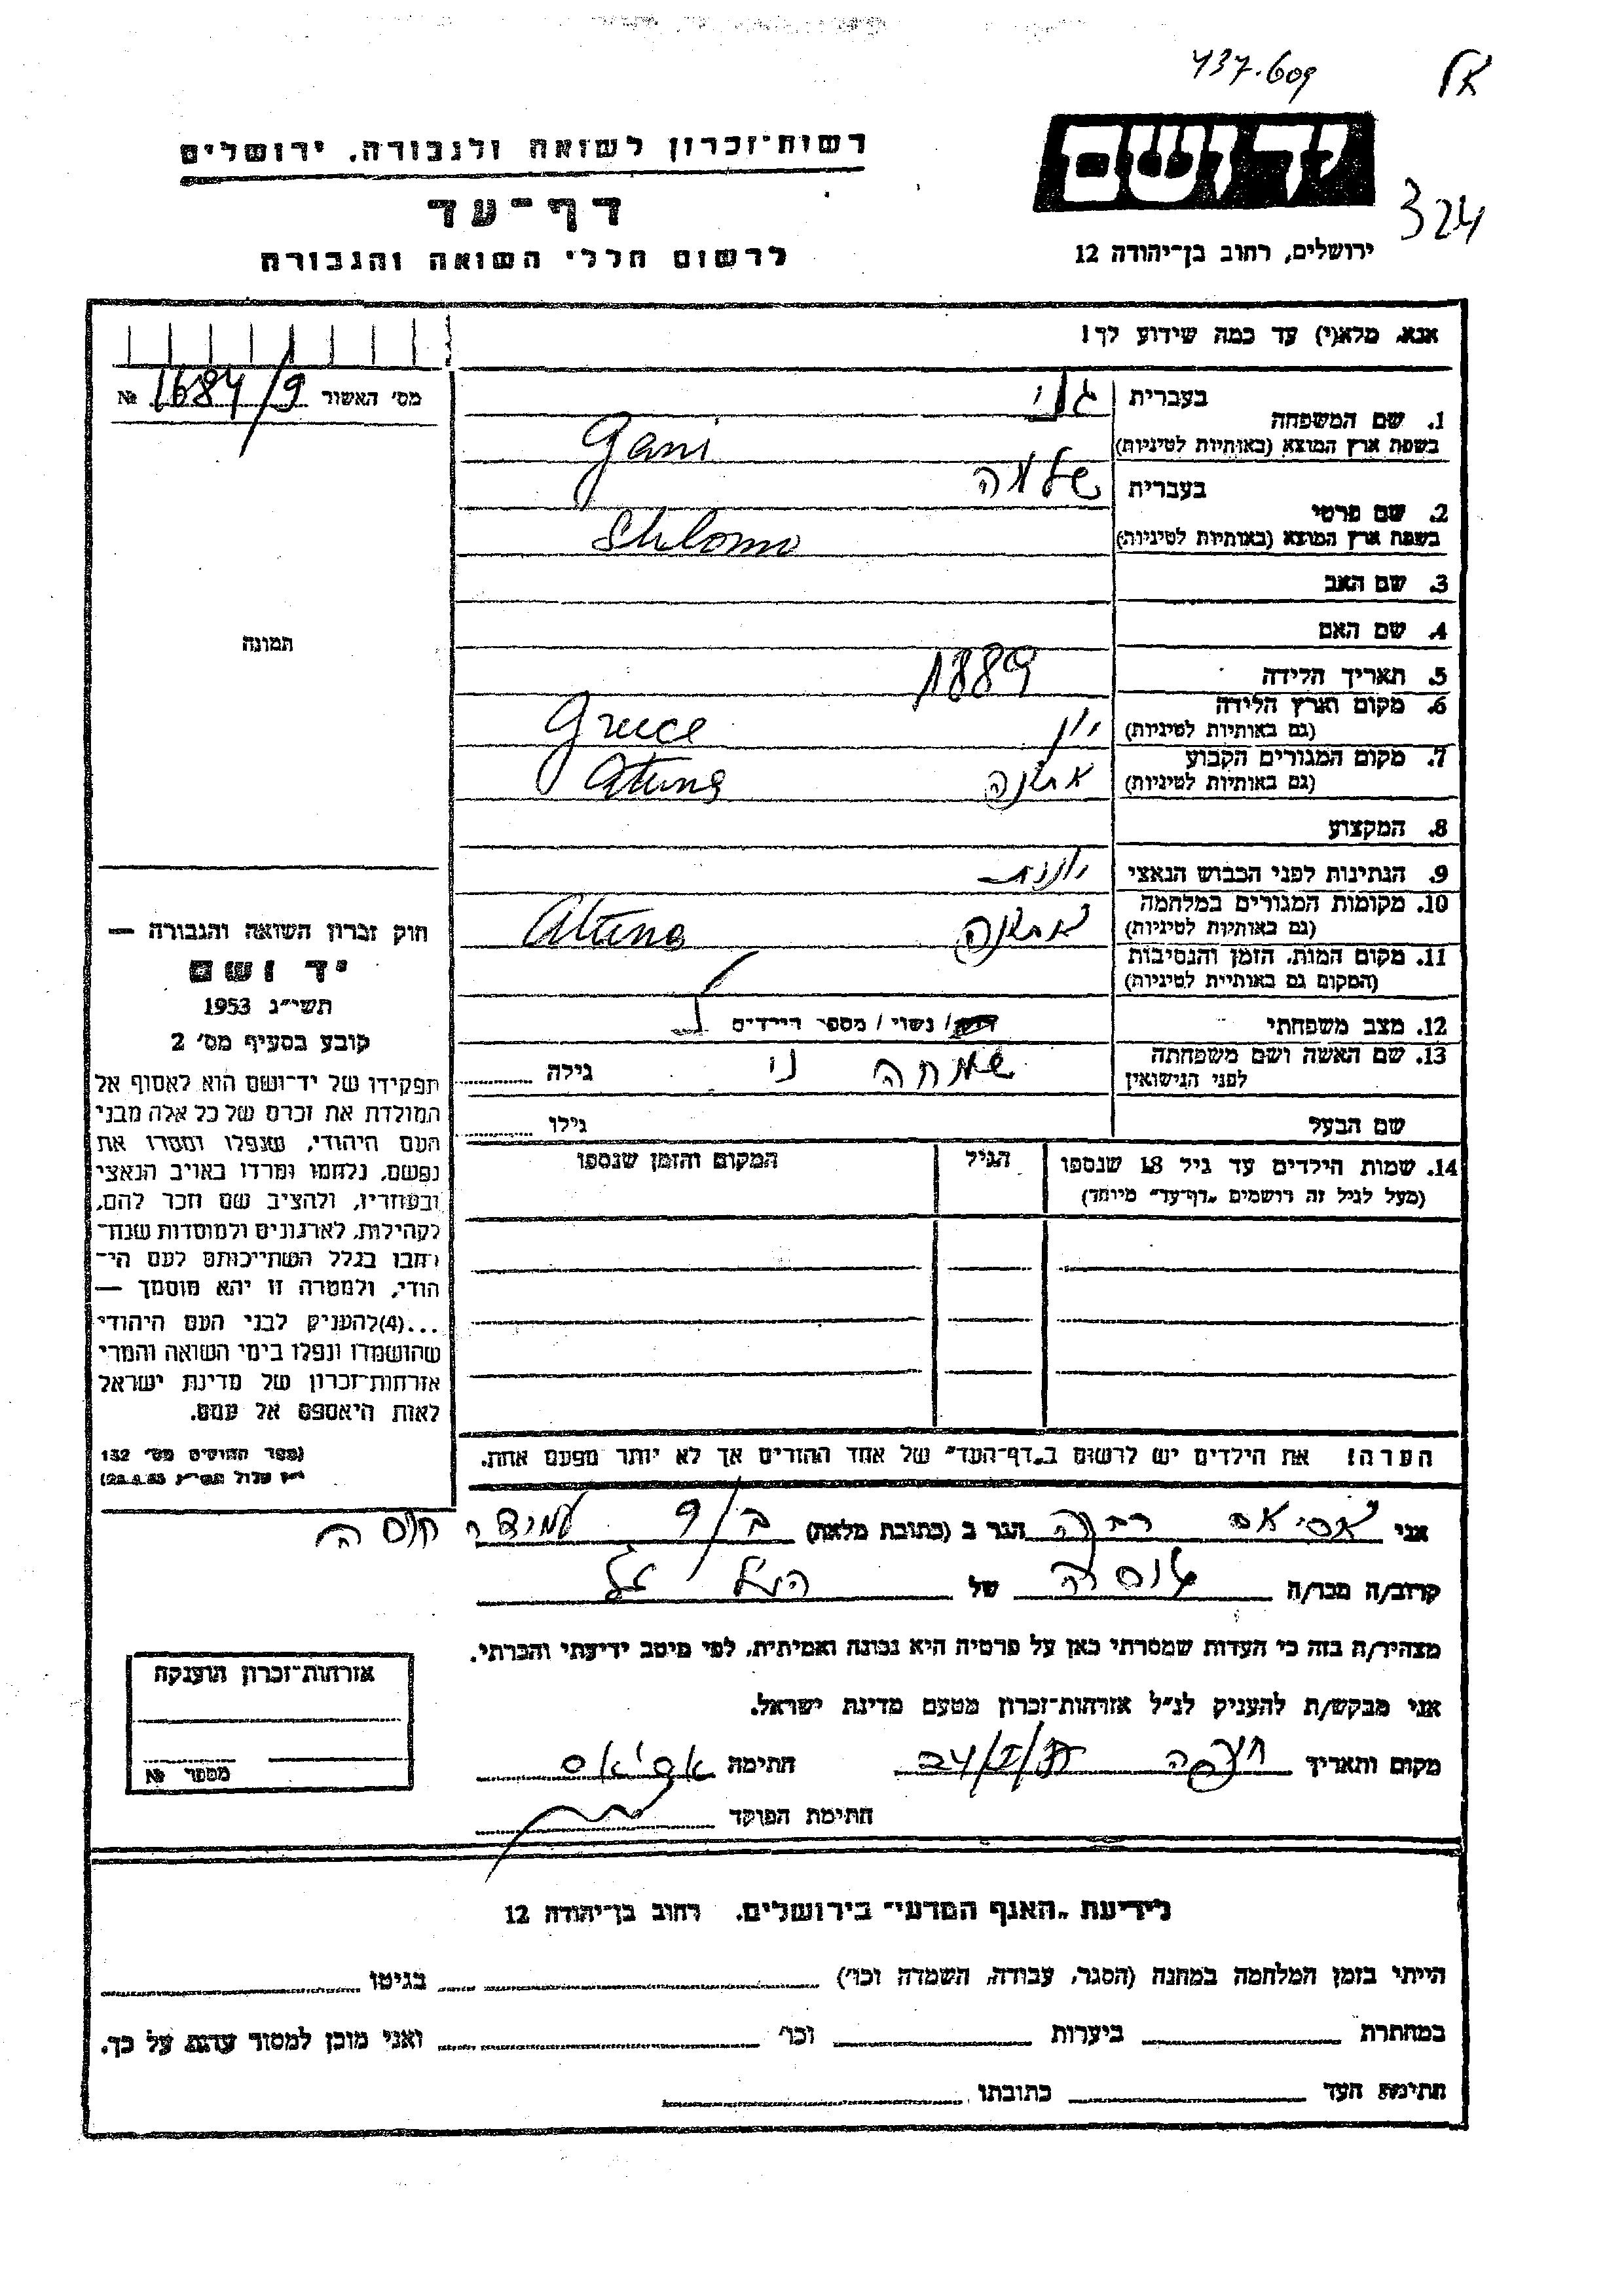 437.609
324
יד ושם
ירושלים, רחוב בן־יהודה 12
רשות־זכרון לשואה ולגבורה, ירושלים
דף־עד
לרשום חללי השואה והגבורה
אנא, מלא(י) עד כמה שידוע לך!
מס׳ האשור 1684/9 №
1. שם המשפחה
בעברית גני
בשפת ארץ המוצא (באותיות לטיניות) Gani
2. שם פרטי
בעברית שלמה
בשפת ארץ המוצא (באותיות לטיניות) Shlomo
3. שם האב
4. שם האם
5. תאריך הלידה 1889
6. מקום וארץ הלידה
(גם באותיות לטיניות) יון Grece
7. מקום המגורים הקבוע
(גם באותיות לטיניות) אתונה Atena
8. המקצוע
9. הנתינות לפני הכבוש הנאצי יוונית
10. מקומות המגורים במלחמה
(גם באותיות לטיניות) אתונה Atena
11. מקום המות, הזמן והנסיבות
(המקום גם באותיות לטיניות)
12. מצב משפחתי רווק / נשוי / מספר הילדים
13. שם האשה ושם משפחתה
לפני הנישואין שמחה גילה
שם הבעל גילו
14. שמות הילדים עד גיל 18 שנספו הגיל המקום והזמן שנספו
(מעל לגיל זה רושמים „דף־עד״ מיוחד)
הערה! את הילדים יש לרשום ב„דף־העד״ של אחד ההורים אך לא יותר מפעם אחת.
תמונה
חוק זכרון השואה והגבורה —
יד ושם
תשי״ג 1953
קובע בסעיף מס׳ 2
תפקידו של יד־ושם הוא לאסוף אל
המולדת את זכרם של כל אלה מבני
העם היהודי, שנפלו ומסרו את
נפשם, נלחמו ומרדו באויב הנאצי
ובעוזריו, ולהציב שם וזכר להם,
לקהילות, לארגונים ולמוסדות שנח־
רבו בגלל השתייכותם לעם הי־
הודי, ולמטרה זו יהא מוסמך —
...(4)להעניק לבני העם היהודי
שהושמדו ונפלו בימי השואה והמרי
אזרחות־זכרון של מדינת ישראל
לאות היאספם אל עמם.
(ספר החוקים מס׳ 132
אני הגר ב (כתובת מלאה) ב/9 עמידר
קרוב/ה מכר/ה של הנ״ל
מצהיר/ה בזה כי העדות שמסרתי כאן על פרטיה היא נכונה ואמיתית, לפי מיטב ידיעתי והכרתי.
אני מבקש/ת להעניק לנ״ל אזרחות־זכרון מטעם מדינת ישראל.
מקום ותאריך חיפה חתימה
חתימת הפוקד
אזרחות־זכרון הוענקה
מספר №
לידיעת „האגף המדעי״ בירושלים, רחוב בן־יהודה 12
הייתי בזמן המלחמה במחנה (הסגר, עבודה, השמדה וכו׳) בגיטו
במחתרת ביערות וכו׳ ואני מוכן למסור עדות על כך.
חתימת העד כתובתו